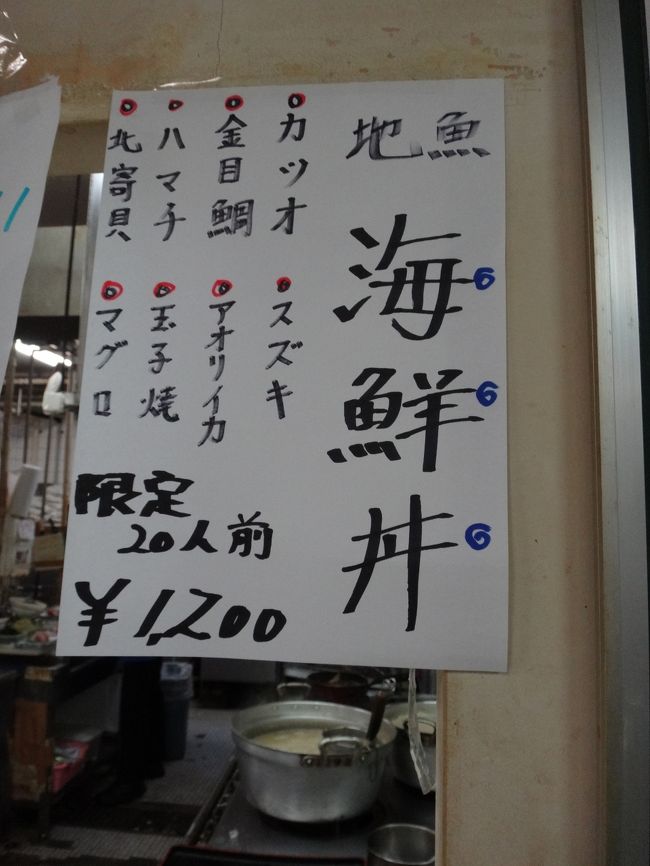 地魚
海鮮丼
カツオ
金目鯛
ハマチ
北寄貝
スズキ
アオリイカ
玉子焼
マグロ
限定
20人前
¥1,200